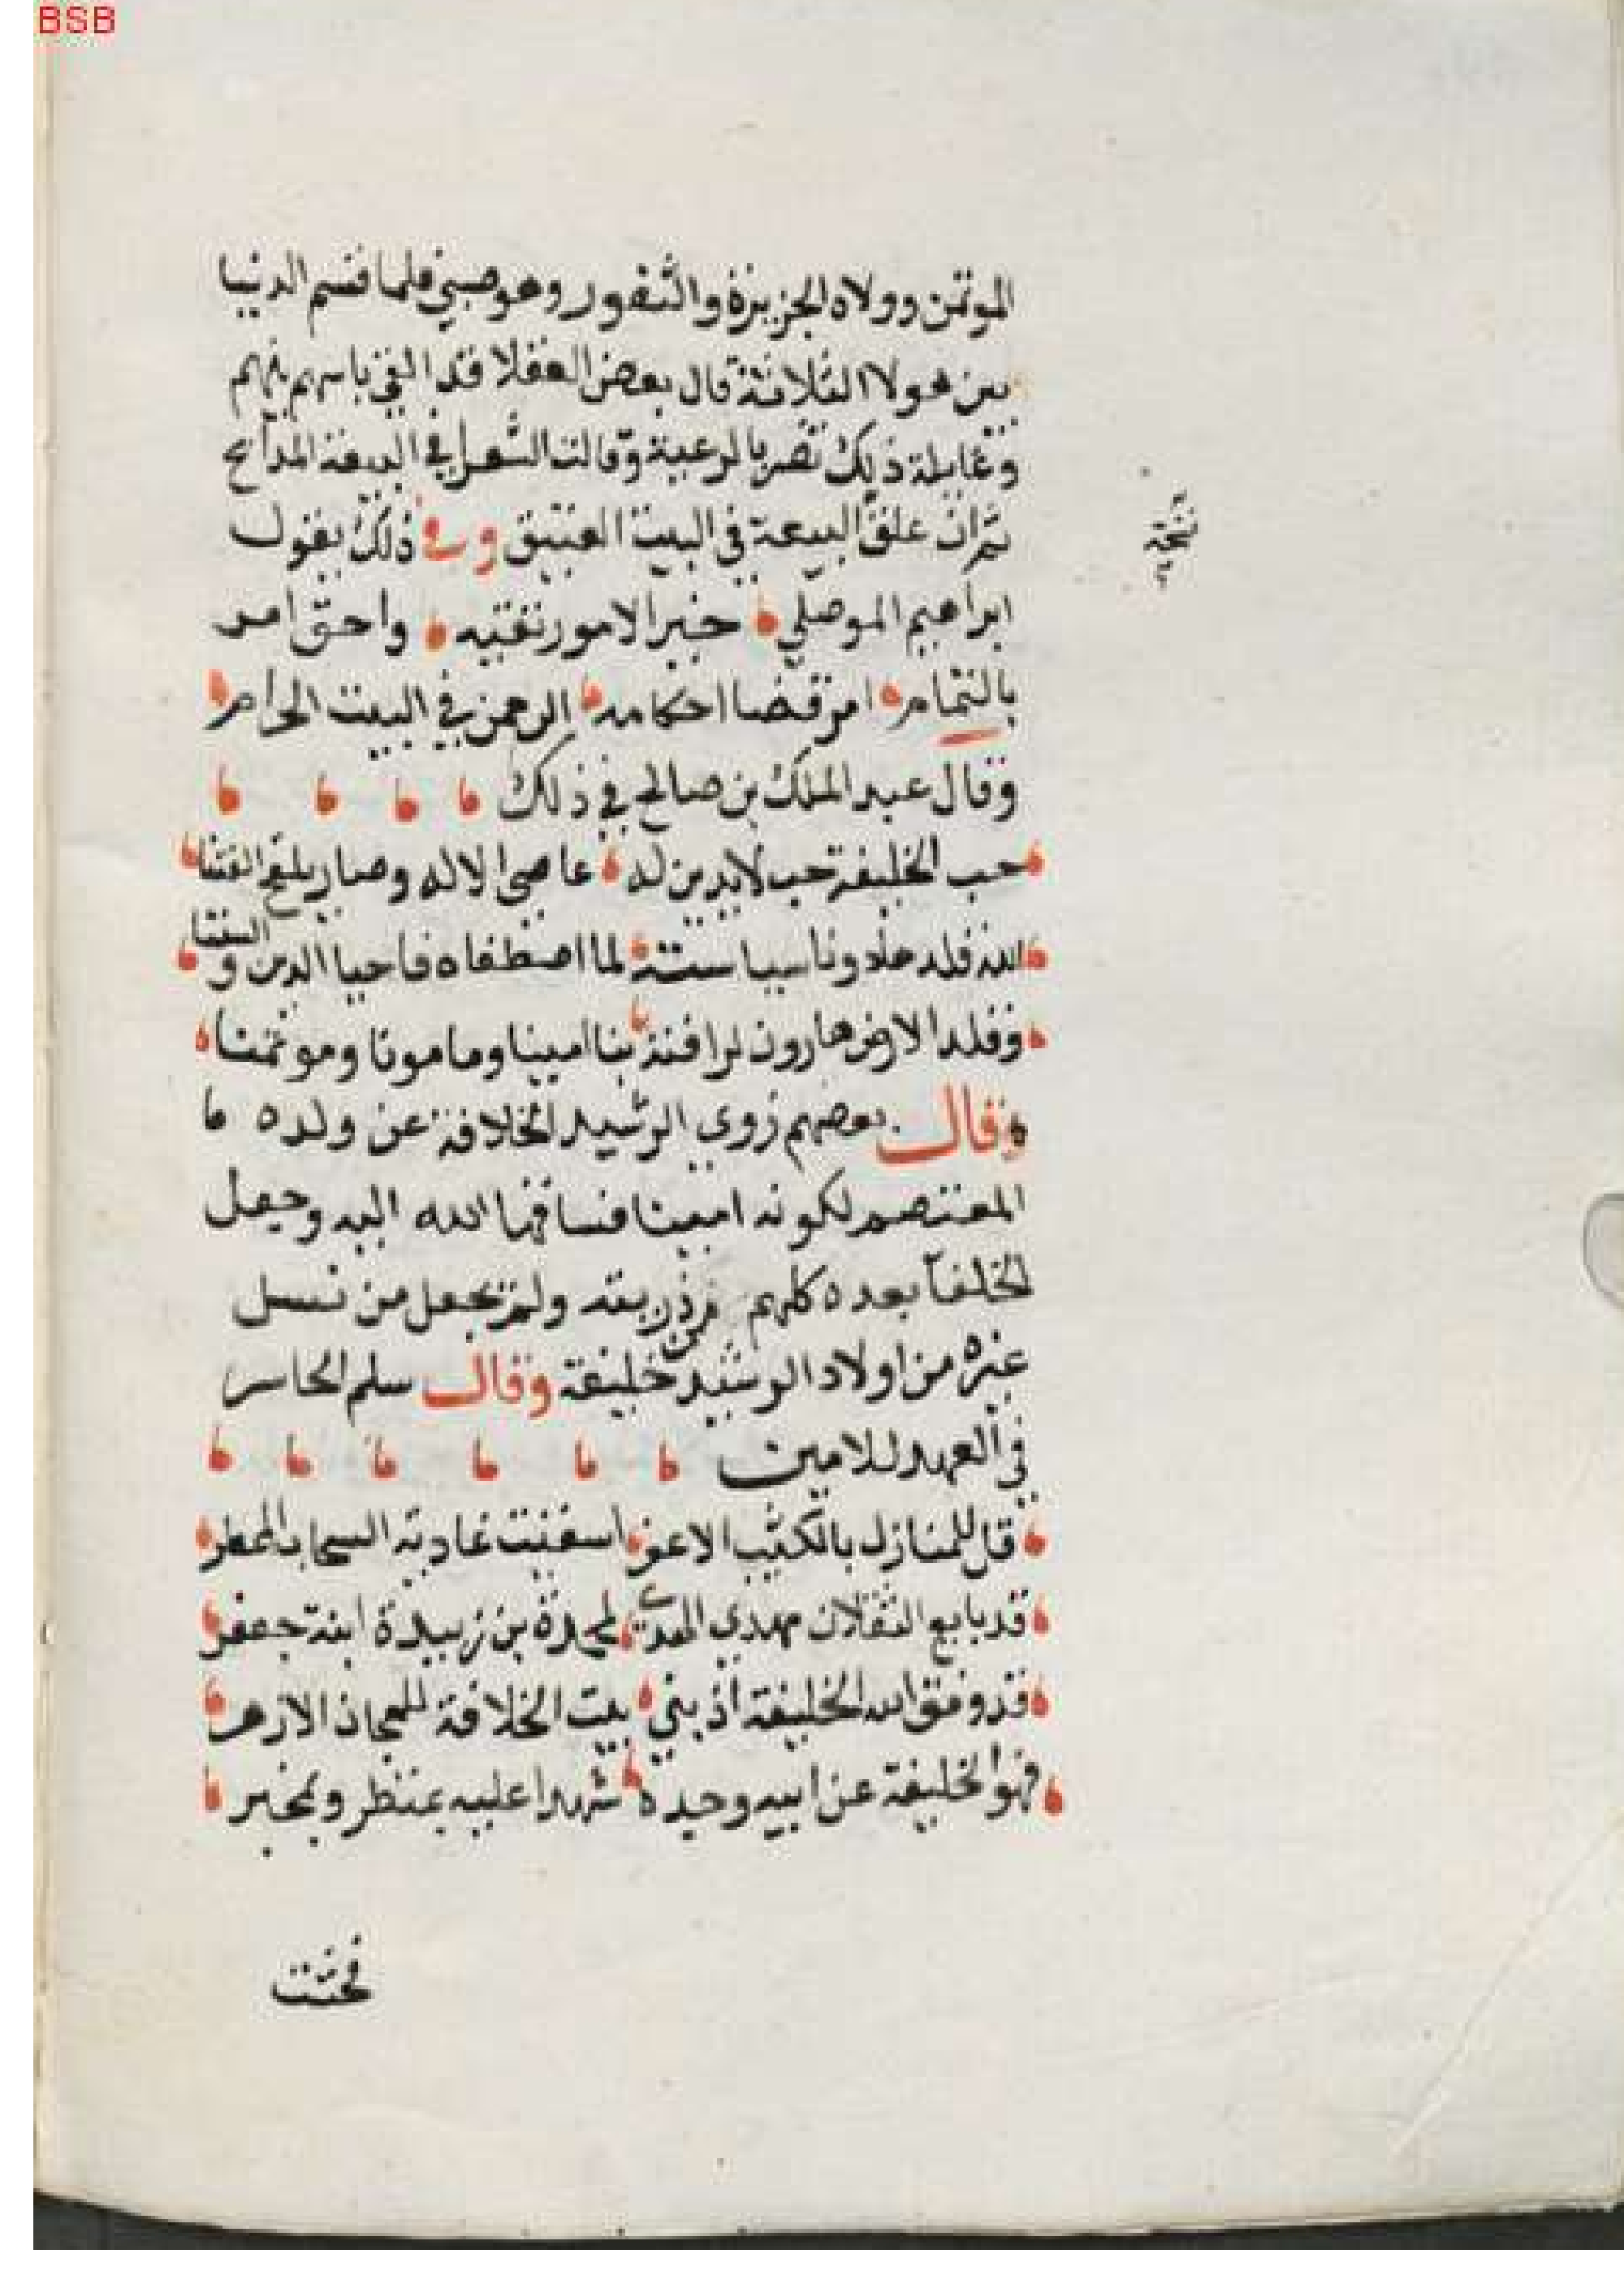 BSB
الموتمن وولاه الجزيرة والثغور وهو صبي فلما قسم الدنيا
بين هولا الثلاثة قال بعض العقلا قد القي باسهم بينهم
وغايلة ذلك تضر بالرعية وقالت الشعرا في البيعة المدايح
ثم انه علق البيعة في البيت العتيق وفي ذلك يقول
ابراهيم الموصلي خير الامور نفتيه واحق امر
بالتمام امر قضا احكامه الرحمن في البيت الحرام
وقال عبد الملك بن صالح في ذلك
حب الخليفة حب لا يدين له عاصي الاله وصار يلقح الفتنا
الله قلد هارونا سياسته لما اصطفاه فاحيا الدين و السننا
وقلد الارض هارون لرافته بنا امينا ومامونا وموتمنا
وقال بعضهم زوى الرشيد الخلافة عن ولده
المعتصم لكونه اميا فساقها الله اليه وجعل
الخلفا بعده كلهم من ذريته ولم يجعل من نسل
غيره من اولاد الرشيد خليفة وقال سلم الخاسر
في العهد للامين
قل للمنازل بالكثيب الاعفر اسقيت غادية السحاب الممطر
قد بايع الثقلان مهدي الهدى لمحمد بن زبيدة ابنة جعفر
قد وفق الله الخليفة اذ بني بيت الخلافة للهجان الازهر
فهو الخليفة عن ابيه وجده شهدا عليه بمنظر وبمخبر
فحثت